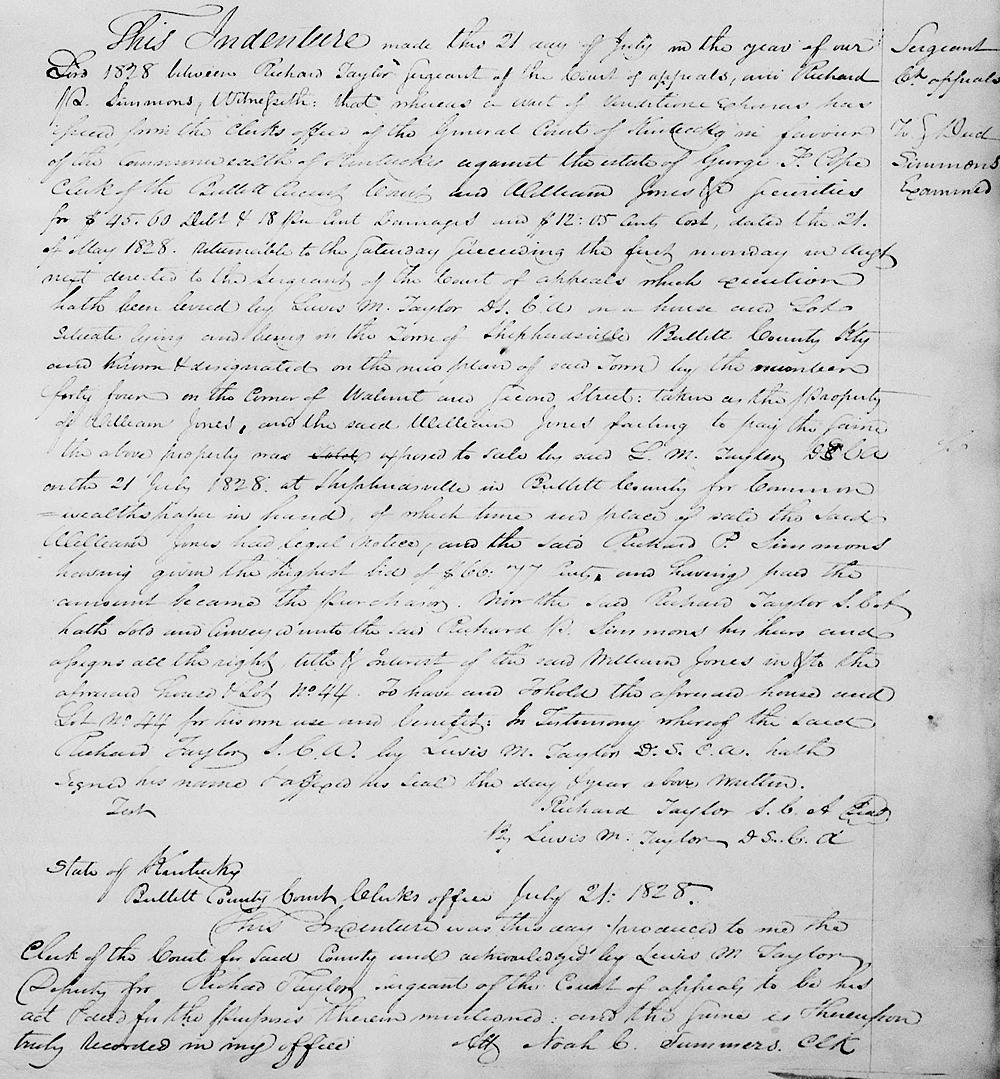 This Indenture made this 21 day of July in the year of our
Lord 1828 between Richard Taylor Sergeant of the Court of appeals, and Richard
P. Simmons, Witnesseth: that whereas a writ of Venditione Exponas has
issued from the Clerks office of the General Court of Kentucky in favour
of the Commonwealth of Kentucky against the estate of George F. Pope
Clerk of the Bullitt Circuit Court and William Jones & securities
for $45.60 Debt & 18 Per Cent Damages and $12:15 Cents Cost, dated the 21.
of May 1828. returnable to the Saturday succeeding the first monday in Augt
next directed to the Sergeant of the Court of appeals which execution
hath been levied by Lewis M. Taylor D.S.C.A on a house and Lot
Situate lying and being in the Town of Shepherdsville Bullitt County Kty
and Known & designated on the new plan of said Town by the number
forty four on the Corner of Walnut and Second Street: taken as the property
of William Jones, and the said William Jones failing to pay the same
the above property was exposed to sale by said L. M. Taylor D S C A
on the 21 July 1828. at Shepherdsville in Bullitt County for Common
=wealths paper in hand, of which time and place of sale the said
William Jones had legal notice, and the said Richard P. Simmons
having given the highest bid of $60:77 Cents, and having paid the
amount became the purchasor. Now the said Richard Taylor S.C.A
hath sold and Conveyed unto the said Richard P. Simmons his heirs and
assigns all the right, title & Interest of the said William Jones in & to the
aforesaid house & Lot No. 44. To have and To hold the aforesaid house and
Lot No. 44 for his own use and benefit: In Testimony whereof the said
Richard Taylor S.C.A. by Lewis M. Taylor D.S.C.A. hath
signed his name & affixed his seal the day & year above written.
Test Richard Taylor S.C.A Seal
By Lewis M. Taylor D S.C.A
State of Kentucky
Bullitt County Court Clerks office July 21: 1828.
This Indenture was this day produced to me the
Clerk of the Court for said County and acknowledged by Lewis M Taylor
Deputy for Richard Taylor sergeant of the Court of appeals to be his
act & deed for the purposes therein mentioned: and the same is thereupon
truly recorded in my office Att Noah C. Summers. Clk
Sergeant
Ct appeals
To } Deed
Simmons
Examined